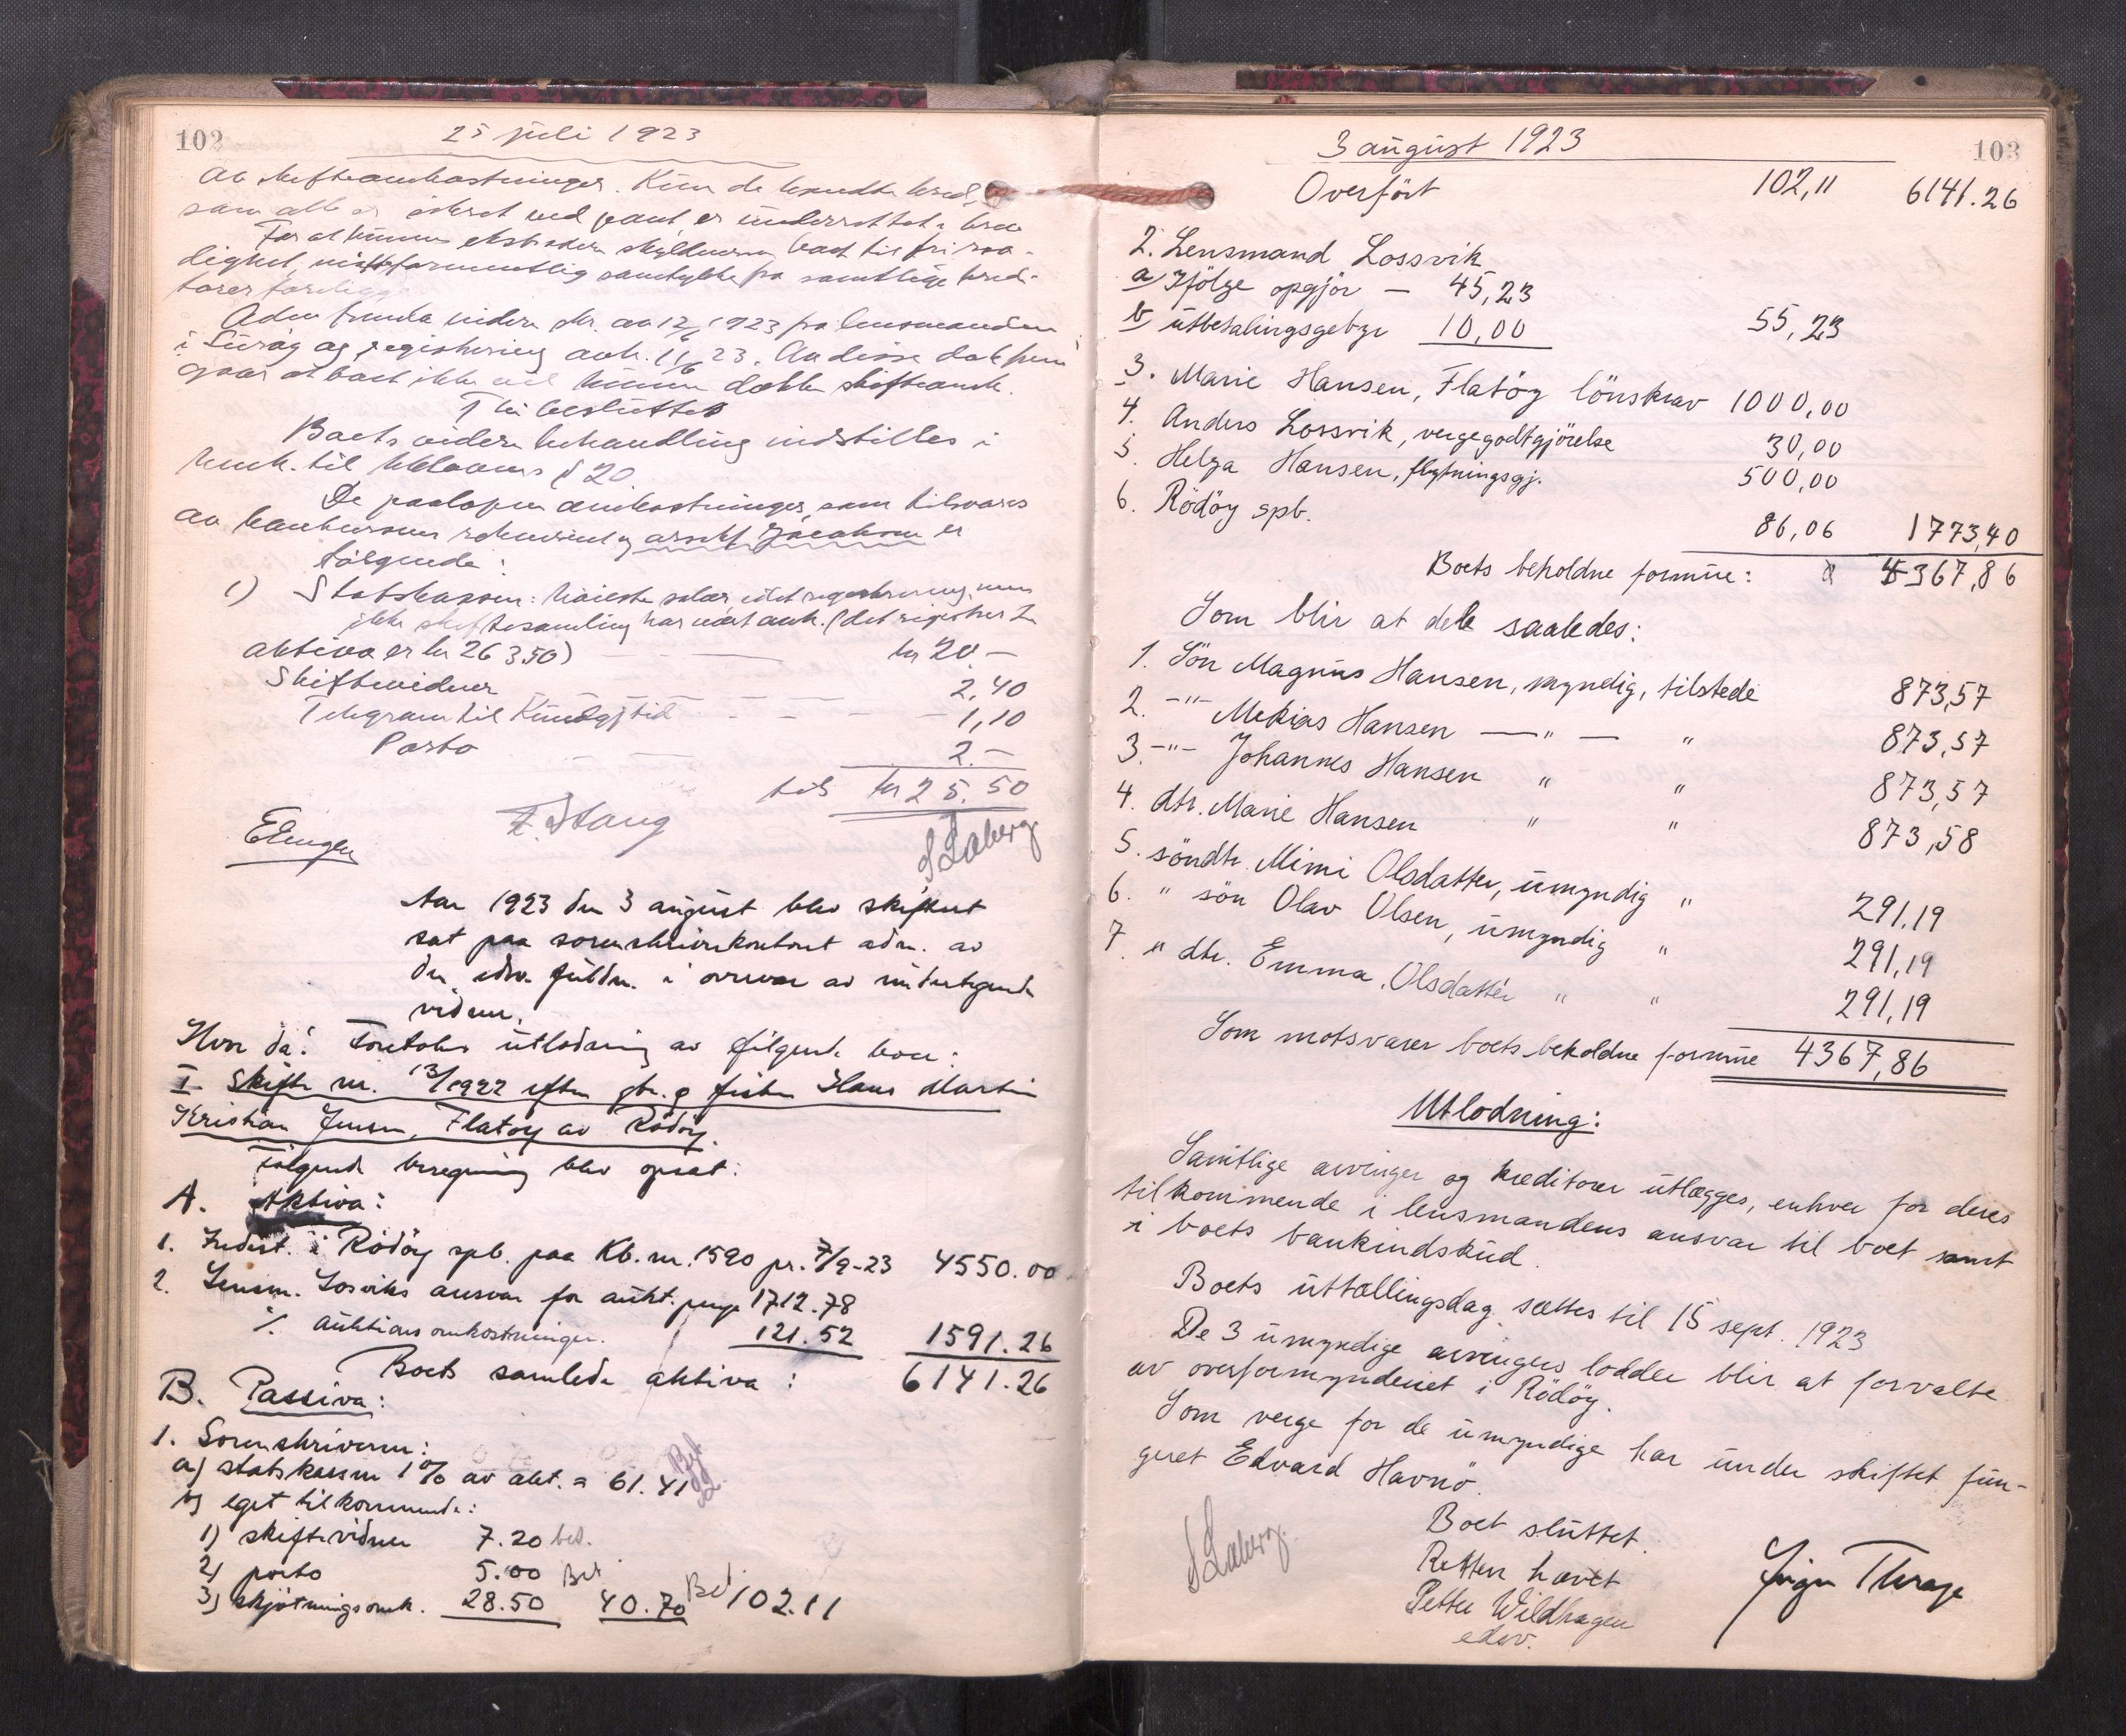 102
25 juli 1923
av skifteomkostninger. Kun de kjendte kred.
som alle er sikret ved pant, er underrettet
For at kunne ekstradere skylderen boet til fri raa-
dighet, maatte samtykke fra samtlige kred-
torer foreligge
12/6 1923 fra lensmanden
i Lurøy og registrering
gaar at boet ikke vil kunne dække skifteomk.
Thi besluttes
Boets videre behandling indstilles i
henh. til kklovens § 20.
De paaløpne omkostninger, som tilsvares
av
følgende:
1) Statskassen: registrering, men
ikke skiftesamling har været avh. (det registrerte
aktiva er kr 263,50) kr 20.-
Skiftevidner 2,40
Telegram til Kundgj.tid 1,10
Porto 2.-
tils kr 25.50
F. Stang
Elingen
S Laberg
Aar 1923 den 3 august blev skifteret
sat paa sorenskriverkontoret adm. av
den edsv. fuldm. i overvær av undertegnede
vidner.
Hvor da: Foretokes utlodning av følgende boer:
I Skifte nr. 13/1922 efter gbr. og fisker Hans Martin
Kristian Jensen, Flatøy av Rødøy.
Følgende beregning blev opsat:
A. Aktiva:
1. Indest. i Rødøy spb. paa Kb. nr. 1590 pr. 7/9-23 4550.00
2. Lensm. Losviks ansvar for aukt. penge 1712.78
% auktionsomkostninger. 121.52 1591.26
Boets samlede aktiva: 6141.26
B. Passiva:
1. Sorenskriveren:
a) statskassen 1% av akt. = 61.41 Bet.
b) eget tilkommende:
1) skiftevidner 7.20 bet.
2) porto 5.00 Bet
3) skjøtningsomk. 28.50 40.70 Bet 102.11
103
3 august 1923
Overført 102,11 6141.26
2. Lensmand Lossvik
a) Ifølge opgjør - 45,23
b) utbetalingsgebyr 10,00 55,23
3. Marie Hansen, Flatöy lönskrav 1000,00
4. Anders Lossvik, vergegodtgjörelse 30,00
5. Helga Hansen, flytningsgj. 500,00
6. Rödöy spb. 86,06 1773,40
Boets beholdne formue: 4367,86
Som blir at dele saaledes:
1. Sön Magnus Hansen, myndig, tilstede 873,57
2. -"- Mekias Hansen -"- " 873,57
3. -"- Johannes Hansen " " 873,57
4. dtr. Marie Hansen " " 873,58
5. söndtr. Mimi Olsdatter, umyndig " 291,19
6. " sön Olav Olsen, umyndig " 291,19
7. " dtr. Emma Olsdatter " " 291,19
Som motsvarer boets beholdne formue 4367,86
Utlodning:
Samtlige arvinger og kreditorer utlægges, enhver for deres
tilkommende i lensmandens ansvar til boet samt
i boets bankindskud.
Boets uttællingsdag sættes til 15 sept. 1923
De 3 umyndige arvingers lodder blir at forvalte
av overformynderiet i Rödöy.
Som verge for de umyndige har under skiftet fun-
geret Edvard Havnö.
Boet sluttet.
Retten hævet
Petter Wildhagen
edsv.
S Laberg.
Inga Thrap